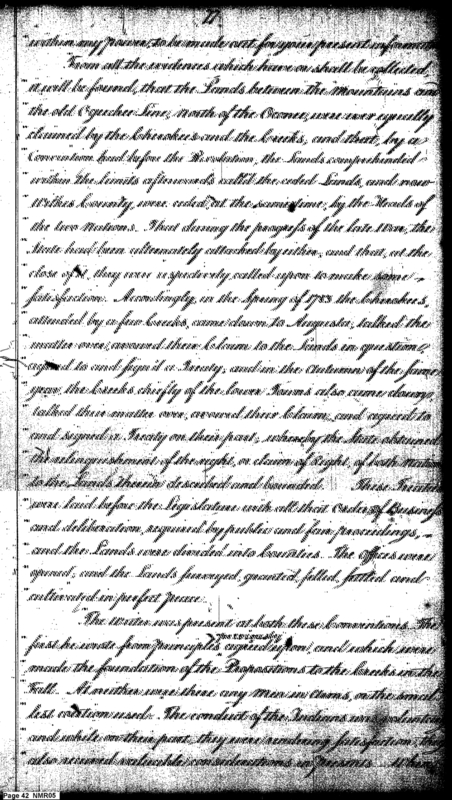 17
within my power, to be made out for your present information
From all the evidences which have or shall be collected,
it will be found, that the Lands between the Mountains and
the old Ogechee Line, North of the Oconee, were ever equally
claimed by the Cherokees and the Creeks, and that, by a
Convention had before the Revolution, the Lands comprehended
within the limits afterwards call'd the ceded Lands, and now
Wilkes County, were ceded, at the same time, by the Heads of
the two Nations. That during the progress of the late War, the
State had been alternately attacked by either, and that, at the
close of it, they were respectively called upon to make some
satisfaction. Accordingly, in the Spring of 1783 the Cherokees,
attended by a few Creeks, came down to Augusta, talked the
matter over, avowed their Claim to the Lands in question,
agreed to and sign'd a Treaty, and in the Autumn of the same
year, the Creeks chiefly of the lower Towns also came down,
talked their matter over, avowed their Claim, and agreed to
and signed a Treaty on their part, whereby the State obtained
the relinquishment of the right, or claim of Right, of both Nations
to the Lands therein described and bounded. These Treaties
were laid before the Legislature with all that Order of Business
and deliberation, required by public and fair proceedings,
and the Lands were divided into Counties. The Offices were
opened, and the Lands surveyed, granted, selled, settled and
cultivated in perfect peace.
The writer was present at both these Conventions. The
first he wrote from principles previously agreed upon, and which were
made the foundation of the Propositions to the Creeks in the
Fall. At neither were there any Men in Arms, or the smal-
lest coertion used. The conduct of the Indians was voluntary
and while on their part, they were rendering satisfaction, they
also received valuable considerations in presents. When
Page 42 NMR05